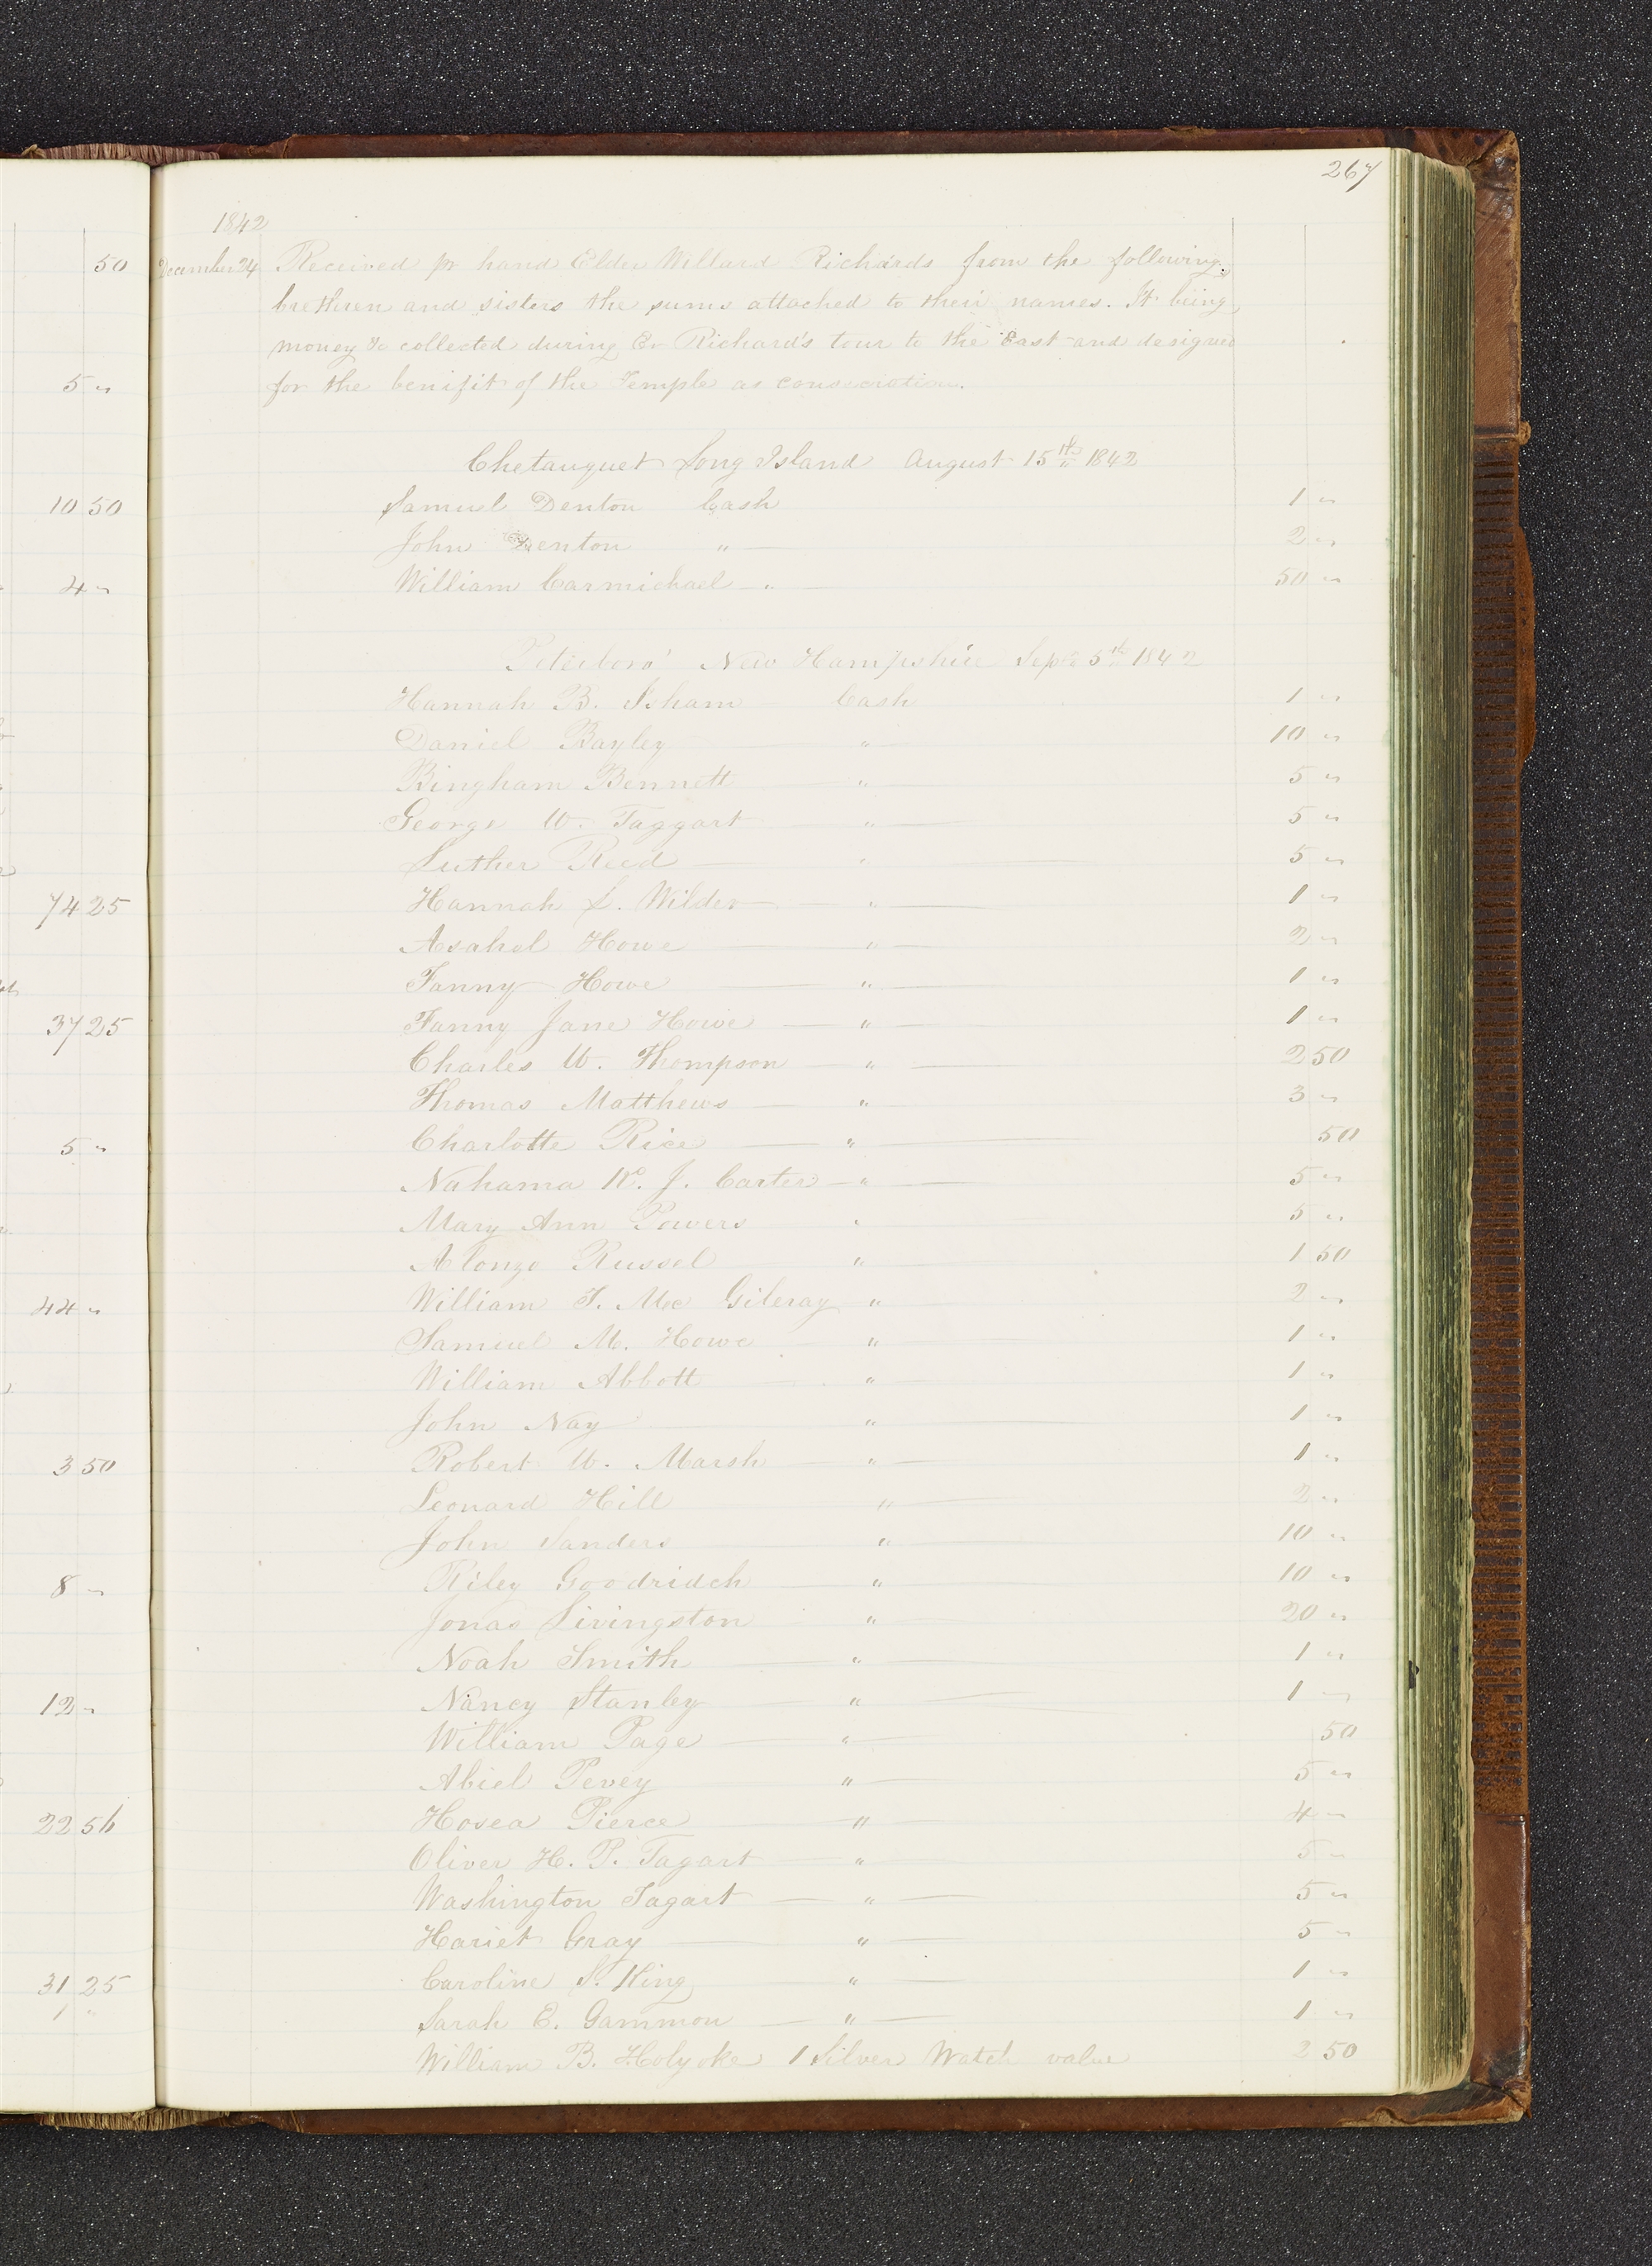 50
5 "
10 50
4 "
74 25
37 25
5 "
44 "
3 50
8 "
12 "
22 56
31 25
1 "
267
1842
December 24 Received pr hand Elder Willard Richards from the following
brethren and sisters the sums attached to their names. It being
money &c collected during Er Richard's tour to the East and designed
for the benifit of the Temple as consecration.
Chetauquet Long Island August 15th 1842
Samuel Denton Cash 1 "
John Denton " 2 "
William Carmichael " 50 "
Peterboro' New Hampshire Sept 5th 1842
Hannah B. Isham Cash 1 "
Daniel Bayley " 10 "
Bingham Bennett " 5 "
George W. Taggart " 5 "
Luther Reed " 5 "
Hannah L. Wilder " 1 "
Asahel Howe " 2 "
Fanny Howe " 1 "
Fanny Jane Howe " 1 "
Charles W. Thompson " 2 50
Thomas Matthews " 3 "
Charlotte Rice " 50
Nahama K. J. Carter " 5 "
Mary Ann Powers " 5 "
Alonzo Russel " 1 50
William T. Mc Gileray " 2 "
Samuel M. Howe " 1 "
William Abbott " 1 "
John Nay " 1 "
Robert W. Marsh " 1 "
Leonard Hill " 2 "
John Sanders " 10 "
Riley Goodridch " 10 "
Jonas Livingston " 20 "
Noah Smith " 1 "
Nancy Stanley " 1 "
William Page " 50
Abiel Pevey " 5 "
Hosea Pierce " 4 "
Oliver H. P. Tagart " 5 "
Washington Tagart " 5 "
Hariet Gray " 5 "
Caroline S. King " 1 "
Sarah E. Gammon " 1 "
William B. Holyoke 1 Silver Watch value 2 50